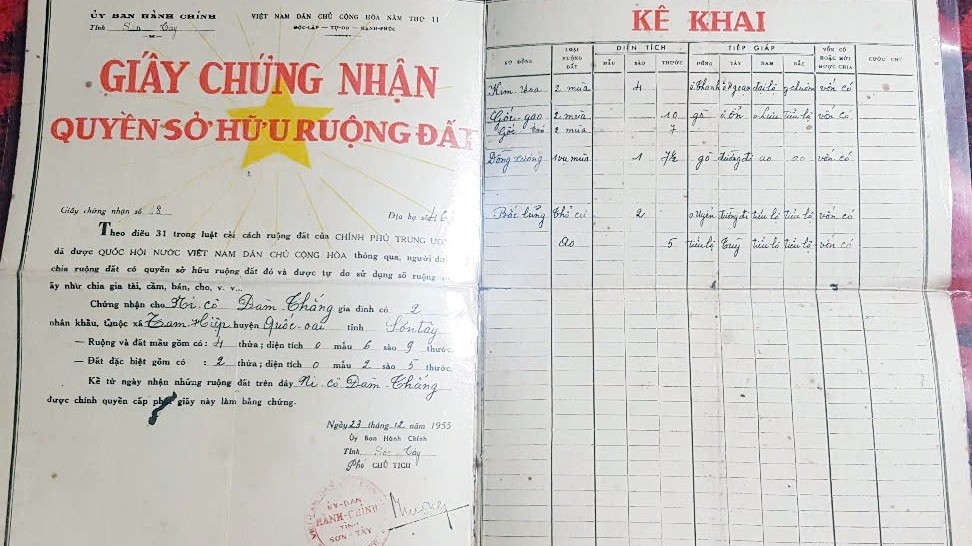 ỦY BAN HÀNH CHÍNH
Tỉnh Sơn Tây
VIỆT NAM DÂN CHỦ CỘNG HÒA NĂM THỨ 11
ĐỘC-LẬP — TỰ-DO — HẠNH-PHÚC
GIẤY CHỨNG NHẬN
QUYỀN SỞ HỮU RUỘNG ĐẤT
Giấy chứng nhận số
Địa bạ số
Theo điều 31 trong luật cải cách ruộng đất của CHÍNH PHỦ TRUNG ƯƠN
đã được QUỐC HỘI NƯỚC VIỆT NAM DÂN CHỦ CỘNG HÒA thông qua, người đư
chia ruộng đất có quyền sở hữu ruộng đất đó và được tự do sử dụng số ruộng
ấy như chia gia tài, cầm, bán, cho, v. v...
Chứng nhận cho Ni-cô Đàm Thắng gia đình có 2
nhân khẩu, thuộc xã Tam Hiệp huyện Quốc-oai tỉnh Sơn tây
— Ruộng và đất mầu gồm có: 4 thửa; diện tích 0 mẫu 6 sào 9 thước.
— Đất đặc biệt gồm có : 2 thửa; diện tích 0 mẫu 2 sào 5 thước.
Kể từ ngày nhận những ruộng đất trên đây Ni-cô Đàm Thắng
được chính quyền cấp phát giấy này làm bằng chứng.
Ngày 23 tháng 12 năm 1955
Ủy Ban Hành Chính
Tỉnh Sơn Tây
Phó CHỦ TỊCH
ỦY-BAN
HÀNH-CHÍNH
TỈNH
SƠN-TÂY
KÊ KHAI
XỨ ĐỒNG LOẠI RUỘNG ĐẤT DIỆN TÍCH MẪU SÀO THƯỚC TIẾP GIÁP ĐÔNG TÂY NAM BẮC VỐN CÓ HOẶC MỚI ĐƯỢC CHIA CƯỚC CHÚ
2 mùa 4 ô.Thanh đại lộ vốn có
Gốc-gạo 2 mùa 10 gò tiểu lộ vốn có
2 mùa 7
mùa 1 7½ gò đường đi ao ao vốn có
Thổ cư 2 ô.Uyên đường đi tiểu lộ tiểu lộ vốn có
Ao 5 tiểu lộ tiểu lộ tiểu lộ vốn có